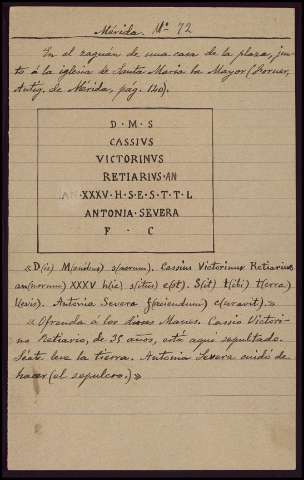 Mérida Nº 72
En el zaguán de una casa de la plaza, jun-
to á la iglesia de Santa María la Mayor (Forner,
Antig. de Mérida, pág. 140).
D · M · S
CASSIVS
VICTORINVS
RETIARIVS · AN
· XXXV · H · S · E · S · T · T · L
ANTONIA · SEVERA
F · C
«D(is) M(anibus) s(acrum). Cassius Victorinus Retiarius
an(norum) XXXV h(ic) s(itus) e(st). S(it) t(ibi) t(erra)
l(evis). Antonia Severa f(aciendum) c(uravit).»
«Ofrenda á los Dioses Manes. Cassio Victori-
no Retiario, de 35 años, está aquí sepultado.
Séate leve la tierra. Antonia Severa cuidó de
hacer (el sepulcro.)»